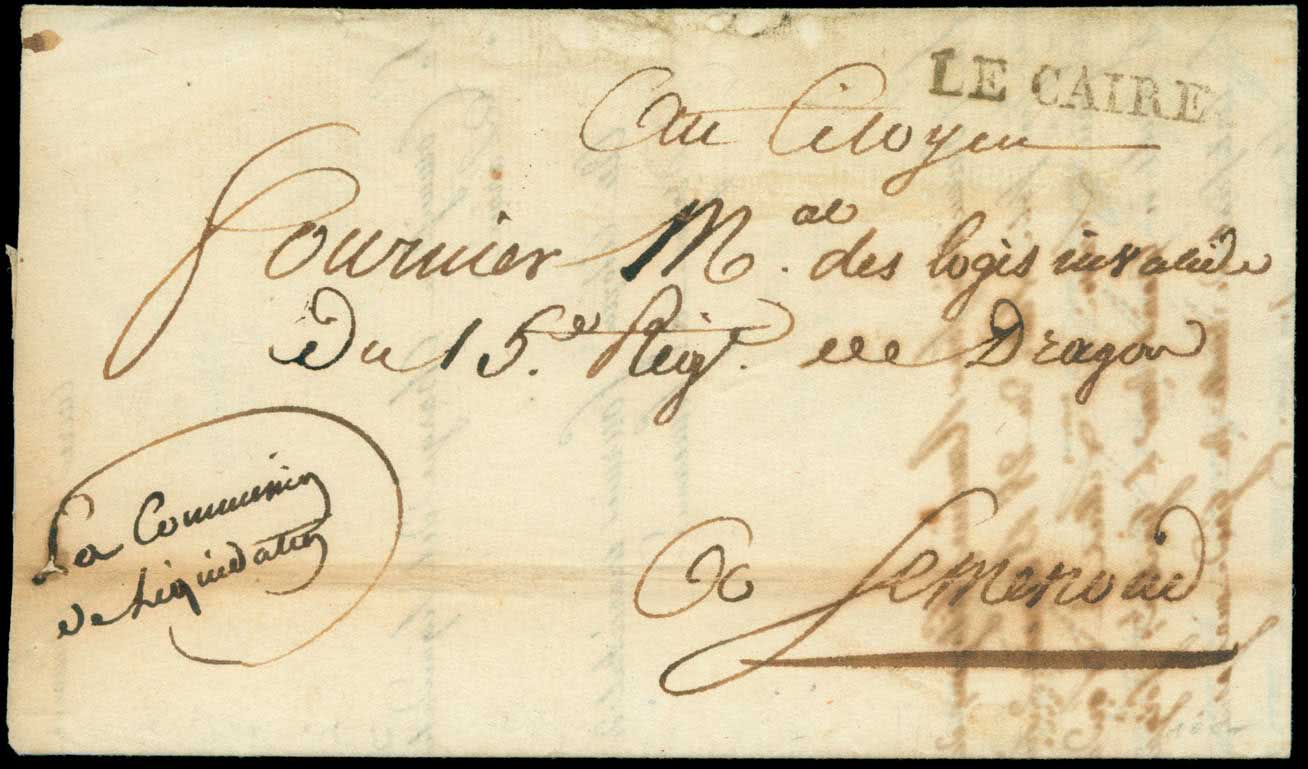 LE CAIRE
Au Citoyen
Fournier M.al des logis invalide
Du 15.e Reigt. de Dragon
La Commission
de Liquidation
A Semenoud